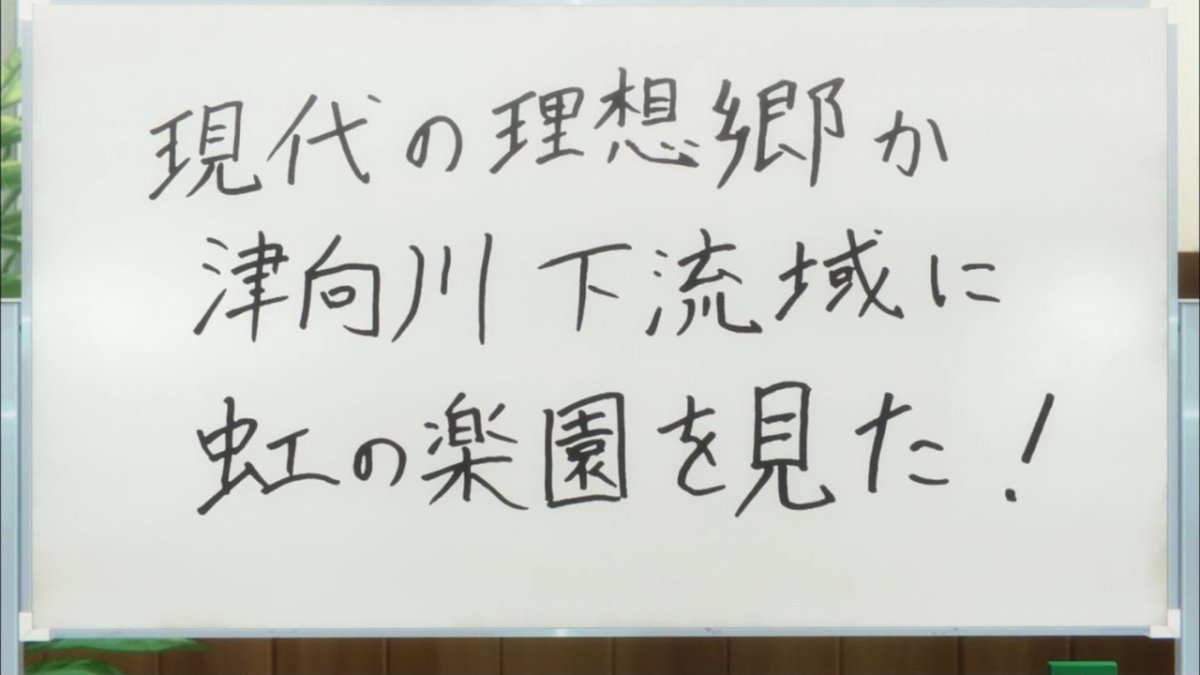 現代の理想郷か
津向川下流域に
虹の楽園を見た！